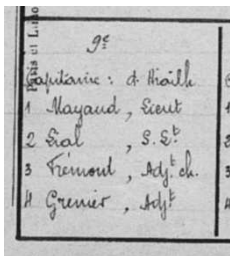 9e
Capitaine : d'Hiailh
1 Mayaud, Lieut
2 Lial, S. Lt
3 Frémont, Adjt. ch.
4 Grenier, Adjt